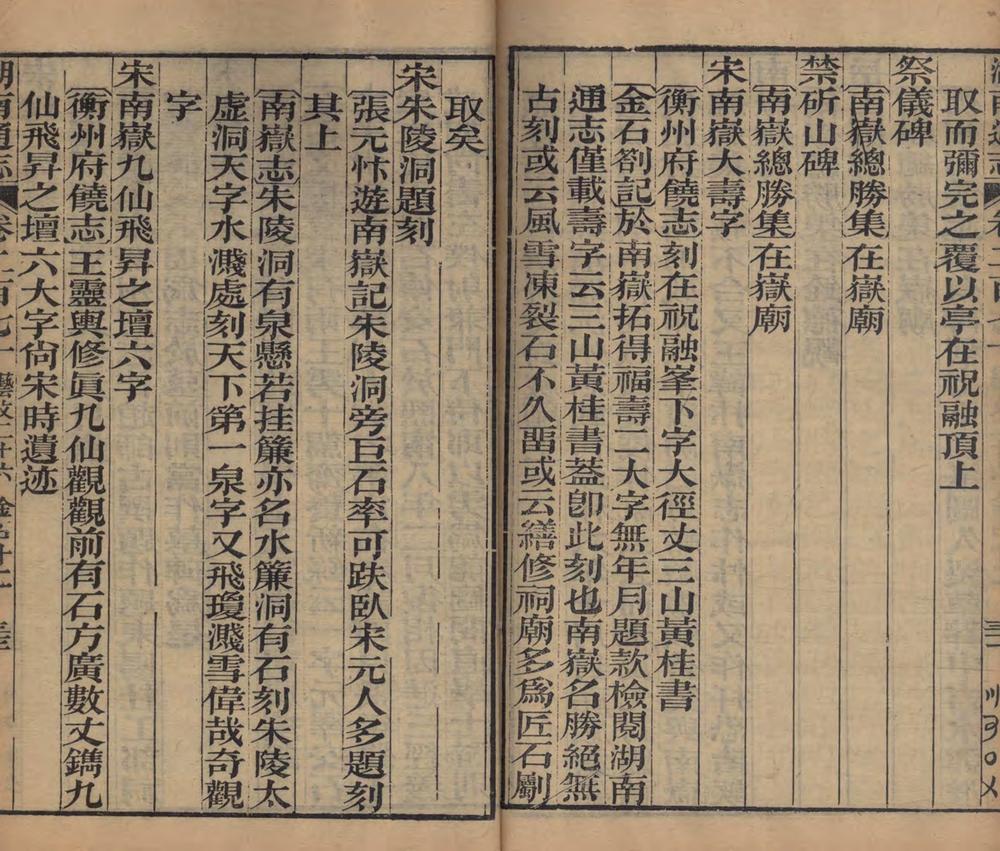 取而彌完之覆以亭在祝融頂上
祭儀碑
南嶽總勝集在嶽廟
禁斫山碑
南嶽總勝集在嶽廟
宋南嶽大壽字
衡州府饒志刻在祝融峯下字大徑丈三山黃桂書
金石劄記於南嶽拓得福壽二大字無年月題款檢閱湖南
通志僅載壽字云三山黃桂書葢卽此刻也南嶽名勝絕無
古刻或云風雪凍裂石不久畱或云繕修祠廟多爲匠石劚
取矣
宋朱陵洞題刻
張元忭遊南嶽記朱陵洞旁巨石率可趺臥宋元人多題刻
其上
南嶽志朱陵洞有泉懸若挂簾亦名水簾洞有石刻朱陵太
虛洞天字水濺處刻天下第一泉字又飛瓊濺雪偉哉奇觀
字
宋南嶽九仙飛昇之壇六字
衡州府饒志王靈輿修眞九仙觀觀前有石方廣數丈鐫九
仙飛昇之壇六大字尙宋時遺迹
湖南通志 卷二百七十一 藝文二十六 金石十二